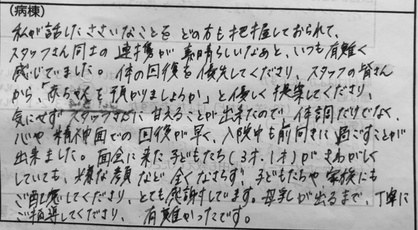 (病棟)
私が話したささいなことを どの方も把握しておられて、
スタッフさん同士の 連携が 素晴らしいなあと、いつも有難く
感じていました。体の回復を優先してくださり、スタッフの皆さん
から、「赤ちゃんを預かりましょうか」と優しく提案してくださり、
気にせず スタッフさんに 甘えることが出来たので、体調だけでなく、
心や 精神面での 回復が早く、入院中も前向きに 過ごすことが
出来ました。面会に来た 子どもたち(3才、1才)が さわがしく
していても、嫌な顔 など 全くなさらず、子どもたちや 家族にも
ご配慮してくださり、とても感謝しています。母乳が出るまで、丁寧に
ご指導してくださり、 有難かったです。